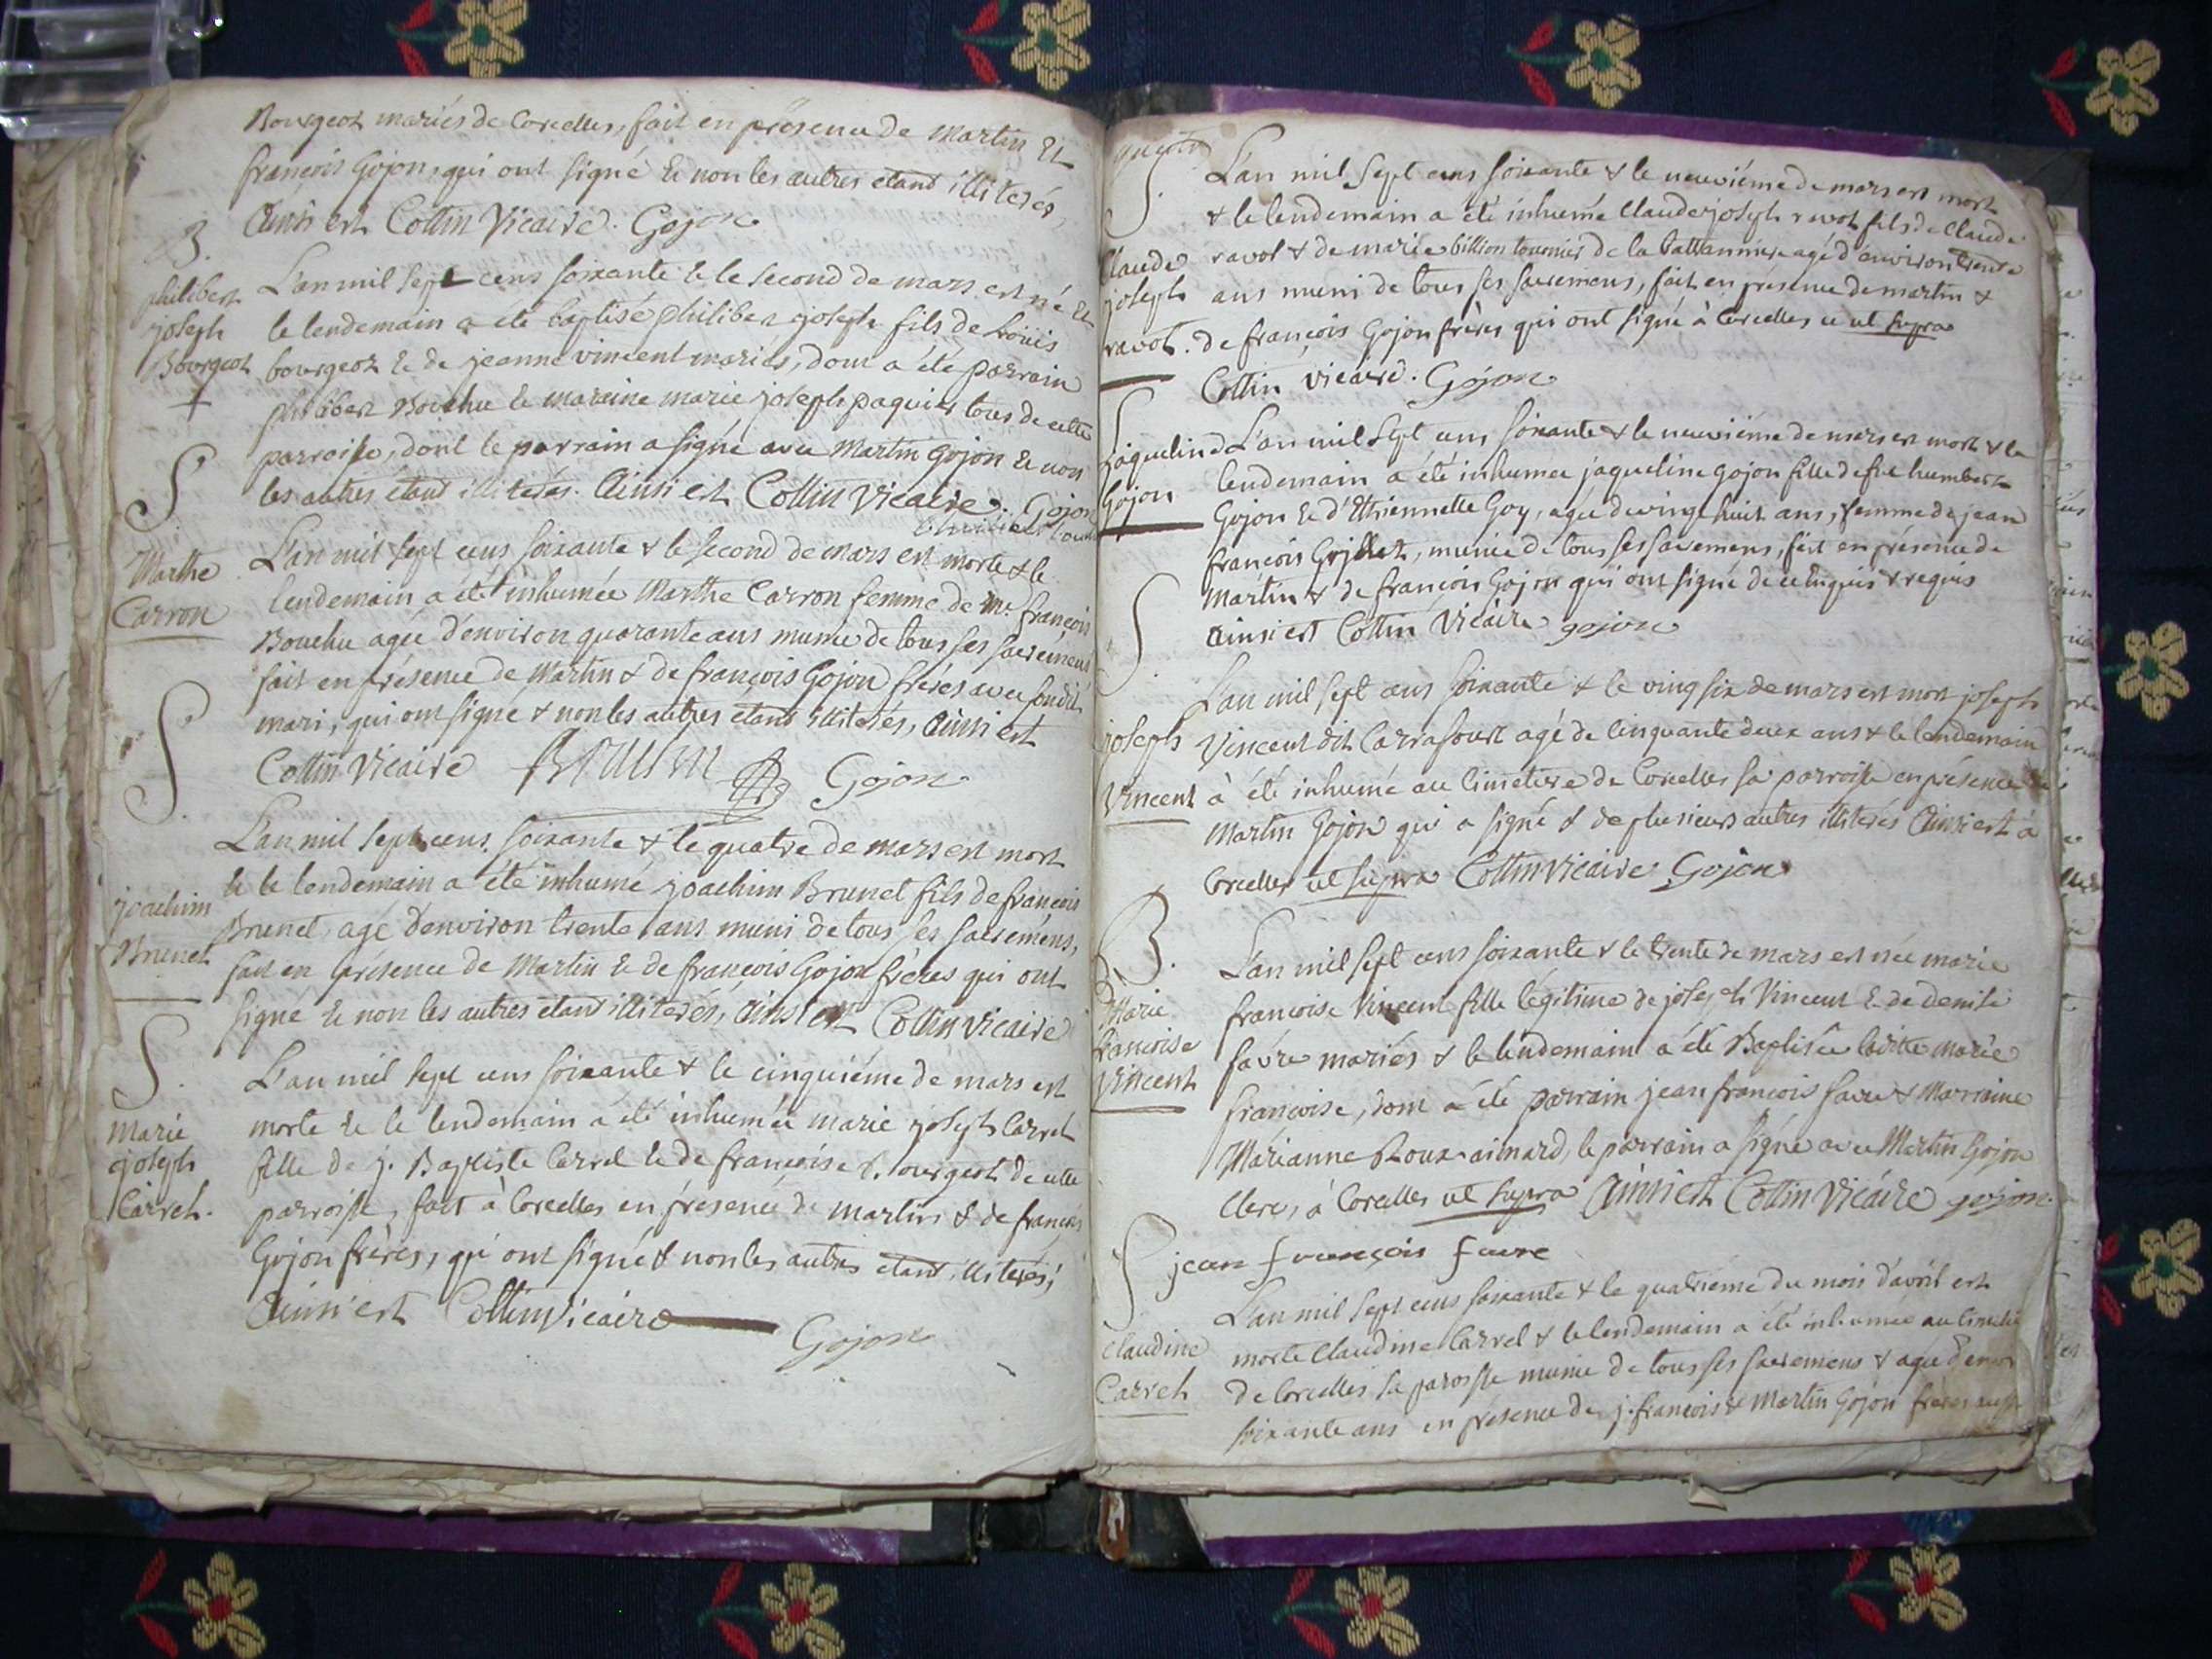 Bourgeot mariés de Corcelles, fait en présence de Martin Et
françois Gojon, qui ont signé & non les autres étant illiterés,
Ainsi est Collin Vicaire. Gojon
B.
philibert
joseph
Bourgeot
L'an mil sept cens soixante & le second de mars est né &
le lendemain a été baptisé philibert joseph fils de Louis
bourgeot & de jeanne vincent mariés, dont a été parrain
philibert Bouchu & maraine marie joseph paquier tous de cette
parroisse, dont le parrain a signé avec Martin Gojon & non
les autres étant illiterés. Ainsi est Collin Vicaire. Gojon
S
Marthe
Carron
L'an mil sept cens soixante & le second de mars est morte & le
lendemain a été inhumée Marthe Carron femme de Mr. françois
Bouchu agée d'environ quarante ans munie de tous ses sacremens
fait en présence de Martin & de françois Gojon frères avec son dit
mari, qui ont signé & non les autres étant illiterés, Ainsi est
Collin Vicaire Gojon
S.
joachim
Brunet
L'an mil sept cens soixante & le quatre de mars est mort
& le lendemain a été inhumé joachim Brunet fils de françois
Brunet, agé d'environ trente ans muni de tous ses sacremens,
fait en présence de Martin & de françois Gojon frères qui ont
signé & non les autres étant illiterés, Ainsi est Collin Vicaire
S.
marie
joseph
Carrel.
L'an mil sept cens soixante & le cinquiéme de mars est
morte & le lendemain a été inhumée marie joseph Carrel
fille de j. Baptiste Carrel & de françoise Bourgeot de cette
parroisse, fait à Corcelles en présence de martin & de françois
Gojon frères, qui ont signé & non les autres étant illiterés;
Ainsi est Collin Vicaire
Gojon
S.
Claude
joseph
ravot.
L'an mil sept cens soixante & le neuviéme de mars est mort
& le lendemain a été inhumé Claude joseph ravot fils de Claude
ravot & de marie billion tournier de la agé d'environ trente
ans muni de tous ses sacremens, fait en présence de martin &
de françois Gojon frères qui ont signé à Corcelles ce ut supra
Collin Vicaire. Gojon
S
jaqueline
Gojon
L'an mil sept cens soixante & le neuviéme de mars est mort & le
lendemain a été inhumée jaqueline gojon fille de feu humbert
Gojon & d'Ethiennette Goy, agée de vingt huit ans, femme de jean
françois Grillet, munie de tous ses sacremens, fait en présence de
Martin & de françois Gojon qui ont signé de ce enquis & requis
Ainsi est Collin Vicaire gojon
S.
joseph
Vincent
L'an mil sept cens soixante & le vingt six de mars est mort joseph
Vincent dit Carrafourt agé de cinquante deux ans & le lendemain
à été inhumé au cimetiere de Corcelles sa parroisse en présence de
Martin Gojon qui a signé & de plusieurs autres illiterés Ainsi est à
Corcelles ut supra Collin Vicaire Gojon
B.
Marie
francoise
Vincent
L'an mil sept cens soixante & le trente de mars est née marie
francoise Vincent fille légitime de joseph Vincent & de denise
favre mariés & le lendemain a été Baptisée laditte marie
françoise, dont a été parrain jean françois favre & Marraine
Marianne Roux aimard, le parrain a signé avec Martin Gojon
Clerc, à Corcelles ut supra Ainsi est Collin Vicaire gojon.
jean françois favre
S
Claudine
Carrel
L'an mil sept cens soixante & le quatriéme du mois d'avril est
morte Claudine Carrel & le lendemain a été inhumée au
de Corcelles sa paroisse munie de tous ses sacremens & agée d'environ
soixante ans en présence de j. françois & Martin Gojon frères